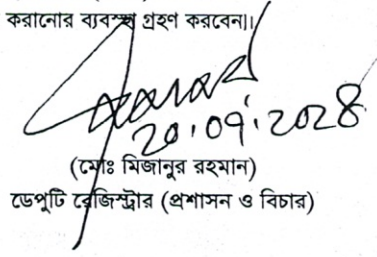 করানোর ব্যবস্থা গ্রহণ করবেন।।
২০.০৭.২০২৪
(মোঃ মিজানুর রহমান)
ডেপুটি রেজিস্ট্রার (প্রশাসন ও বিচার)